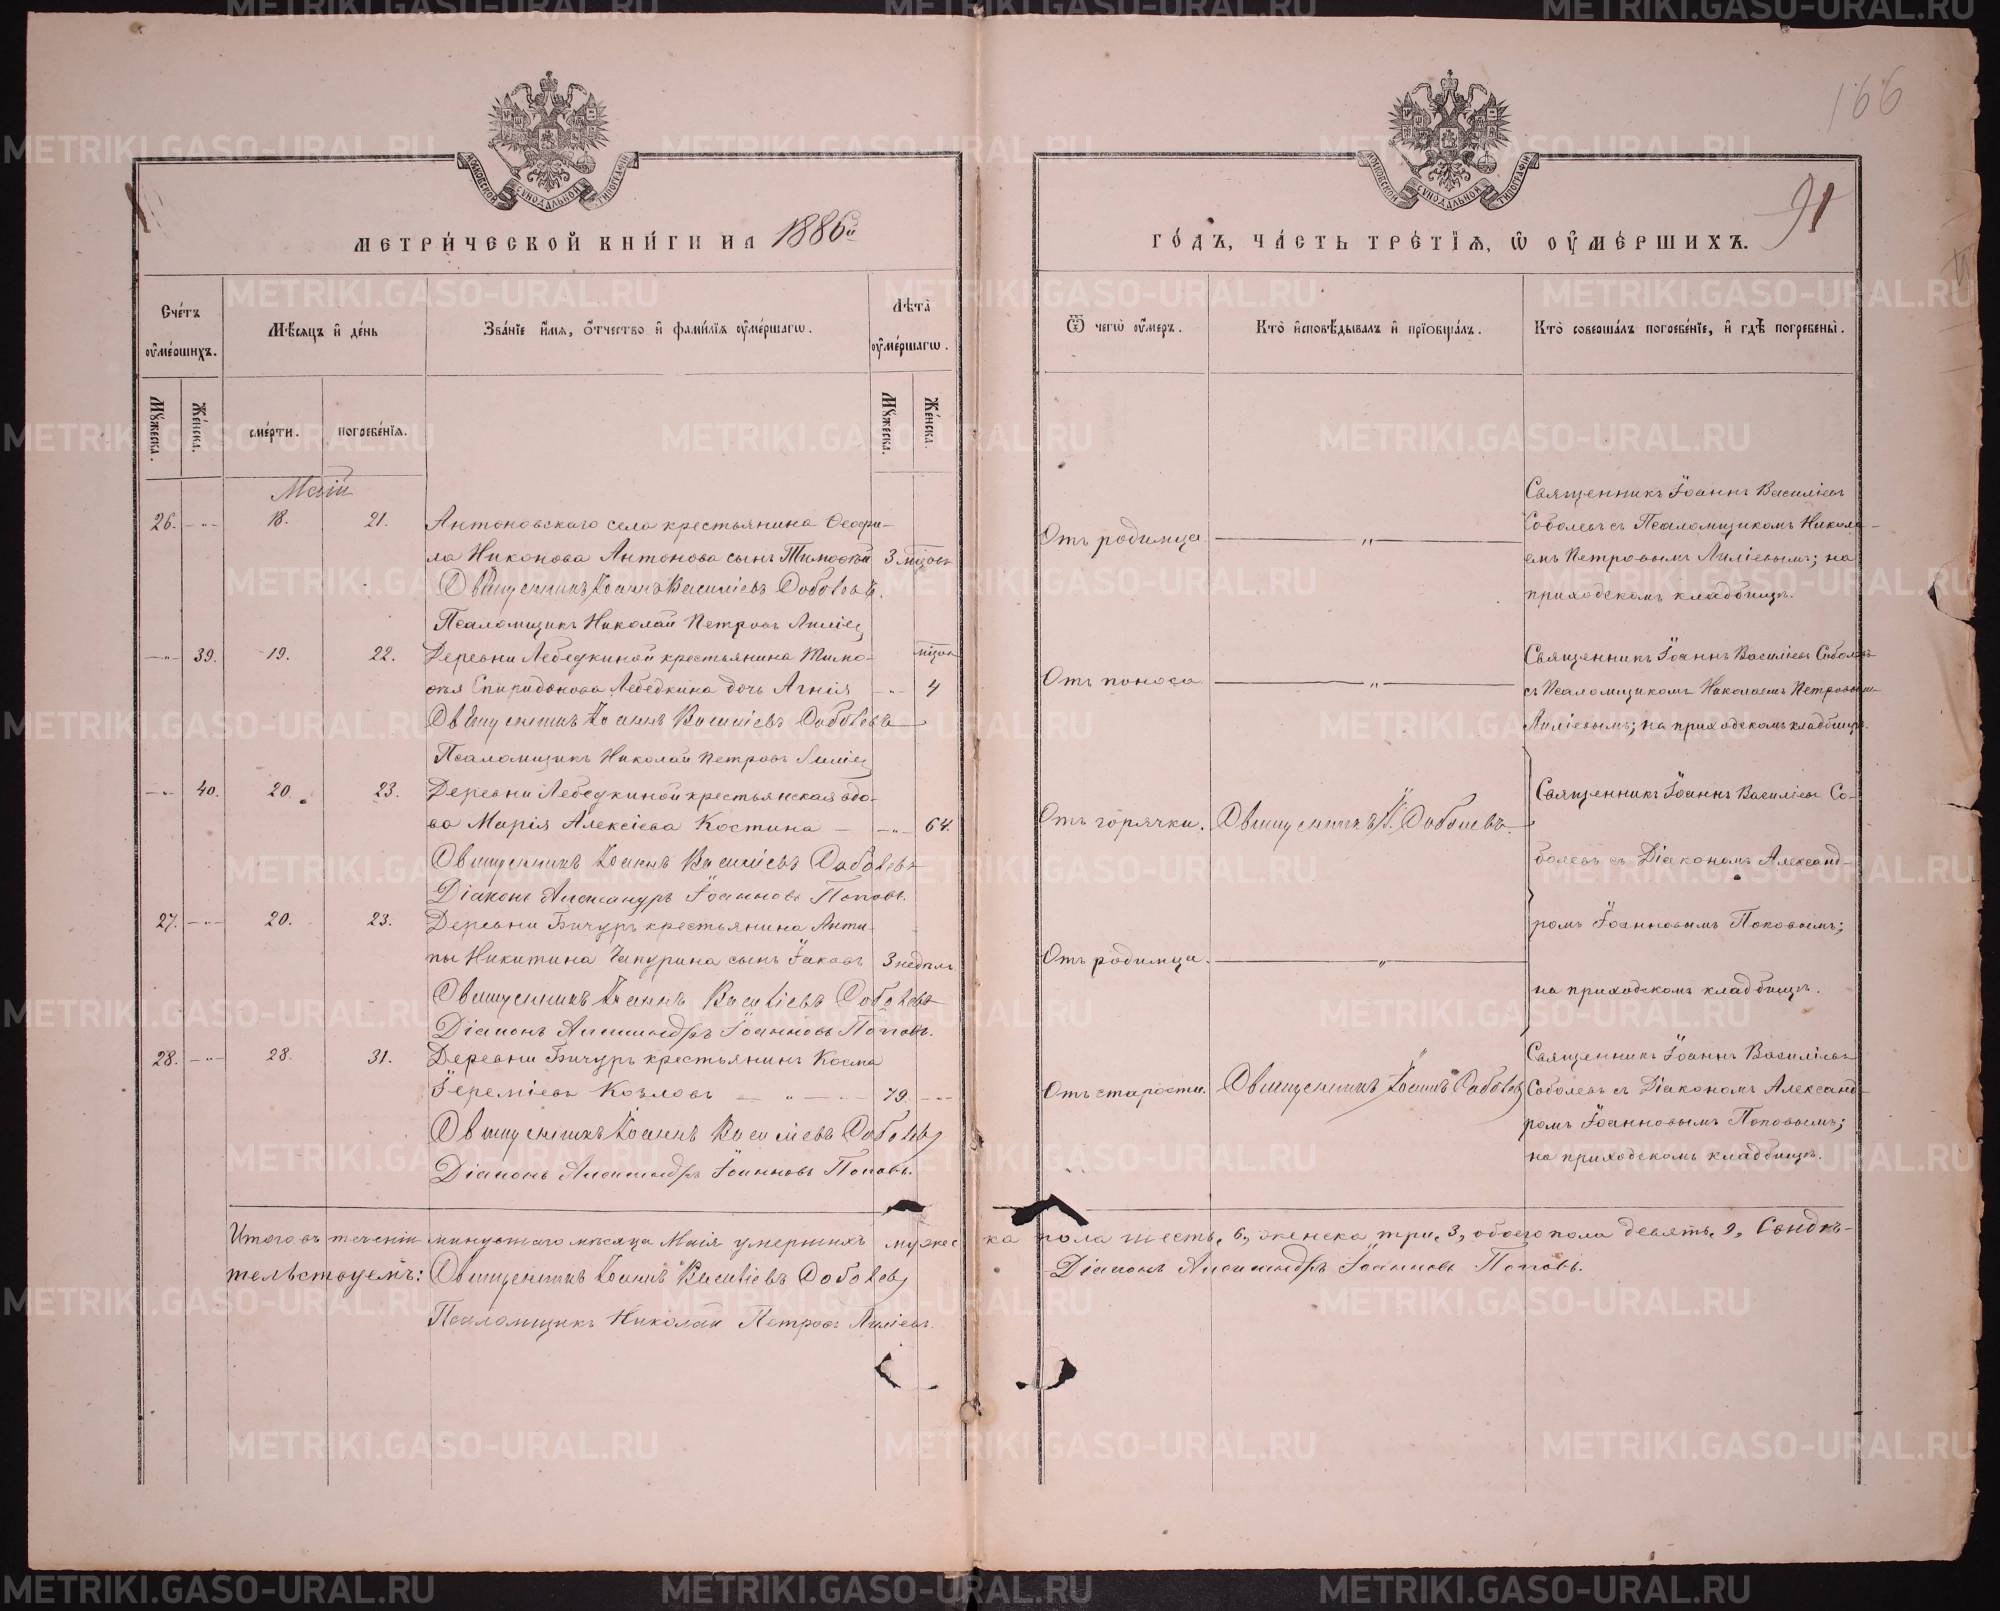 166
91
МОСКОВСКОЙ СѴНОДАЛЬНОЙ ТИПОГРАФІИ
МОСКОВСКОЙ СѴНОДАЛЬНОЙ ТИПОГРАФІИ
МЕТРИЧЕСКОЙ КНИГИ НА 1886й
ГОДЪ, ЧАСТЬ ТРЕТІЯ, Ѡ ОУМЕРШИХЪ.
Счетъ оумершихъ.
Мѣсяцъ и день
Званіе имя, отчество и фамилія оумершагѡ.
Лѣта оумершагѡ.
Ѿ чегѡ оумеръ.
Кто исповѣдывалъ и пріобщалъ.
Кто совершалъ погребеніе, и гдѣ погребены.
Мужеска.
Женска.
смерти.
погребенія.
Мужеска.
Женска.
Маій
26. 18. 21. Антоновскаго села крестьянина Ѳеофи-
ла Никонова Антонова сынъ Тимоѳей 3 мѣсѣ
Священникъ Іоаннъ Василіевъ Соболевъ.
Псаломщикъ Николай Петровъ Лиліев
Отъ родимца
Священникъ Іоаннъ Василіевъ
Соболевъ съ Псаломщикомъ Никола-
емъ Петровымъ Лиліевымъ; на
приходскомъ кладбищѣ.
39. 19. 22. Деревни Лебедкиной крестьянина Тимо-
ѳея Спиридонова Лебедкина дочь Агнія 4
Священникъ Іоаннъ Василіевъ Соболевъ
Псаломщикъ Николай Петровъ Лиліев
Отъ поноса
Священникъ Іоаннъ Василіевъ Соболевъ
съ Псаломщикомъ Николаемъ Петровымъ
Лиліевымъ; на приходскомъ кладбищѣ.
40. 20. 23. Деревни Лебедкиной крестьянская вдо-
ва Марія Алексіева Костина 64.
Священникъ Іоаннъ Василіевъ Соболевъ
Діаконъ Александръ Іоанновъ Поповъ.
Отъ горячки. Священникъ І. Соболевъ.
Священникъ Іоаннъ Василіевъ Со-
болевъ съ Діакономъ Александ-
ромъ Іоанновымъ Поповымъ;
на приходскомъ кладбищѣ.
27. 20. 23. Деревни Бичуръ крестьянина Анти-
пы Никитина Чапурина сынъ Іаковъ 3 недѣль
Священникъ Іоаннъ Василіевъ Соболевъ
Діаконъ Александръ Іоанновъ Поповъ.
Отъ родимца.
28. 28. 31. Деревни Бичуръ крестьянинъ Косма
Іереміевъ Козловъ 79.
Священникъ Іоаннъ Василіевъ Соболевъ
Діаконъ Александръ Іоанновъ Поповъ.
Отъ старости. Священникъ Іоаннъ Соболевъ
Священникъ Іоаннъ Василіевъ
Соболевъ съ Діакономъ Александ-
ромъ Іоанновымъ Поповымъ;
на приходскомъ кладбищѣ.
Итого въ теченіи минувшаго мѣсяца Маія умершихъ мужеска пола шесть, 6, женска три, 3, обоего пола девять, 9, Свидѣ-
тельствуемъ: Священникъ Іоаннъ Василіевъ Соболевъ
Діаконъ Александръ Іоанновъ Поповъ.
Псаломщикъ Николай Петровъ Лиліевъ.
METRIKI.GASO-URAL.RU